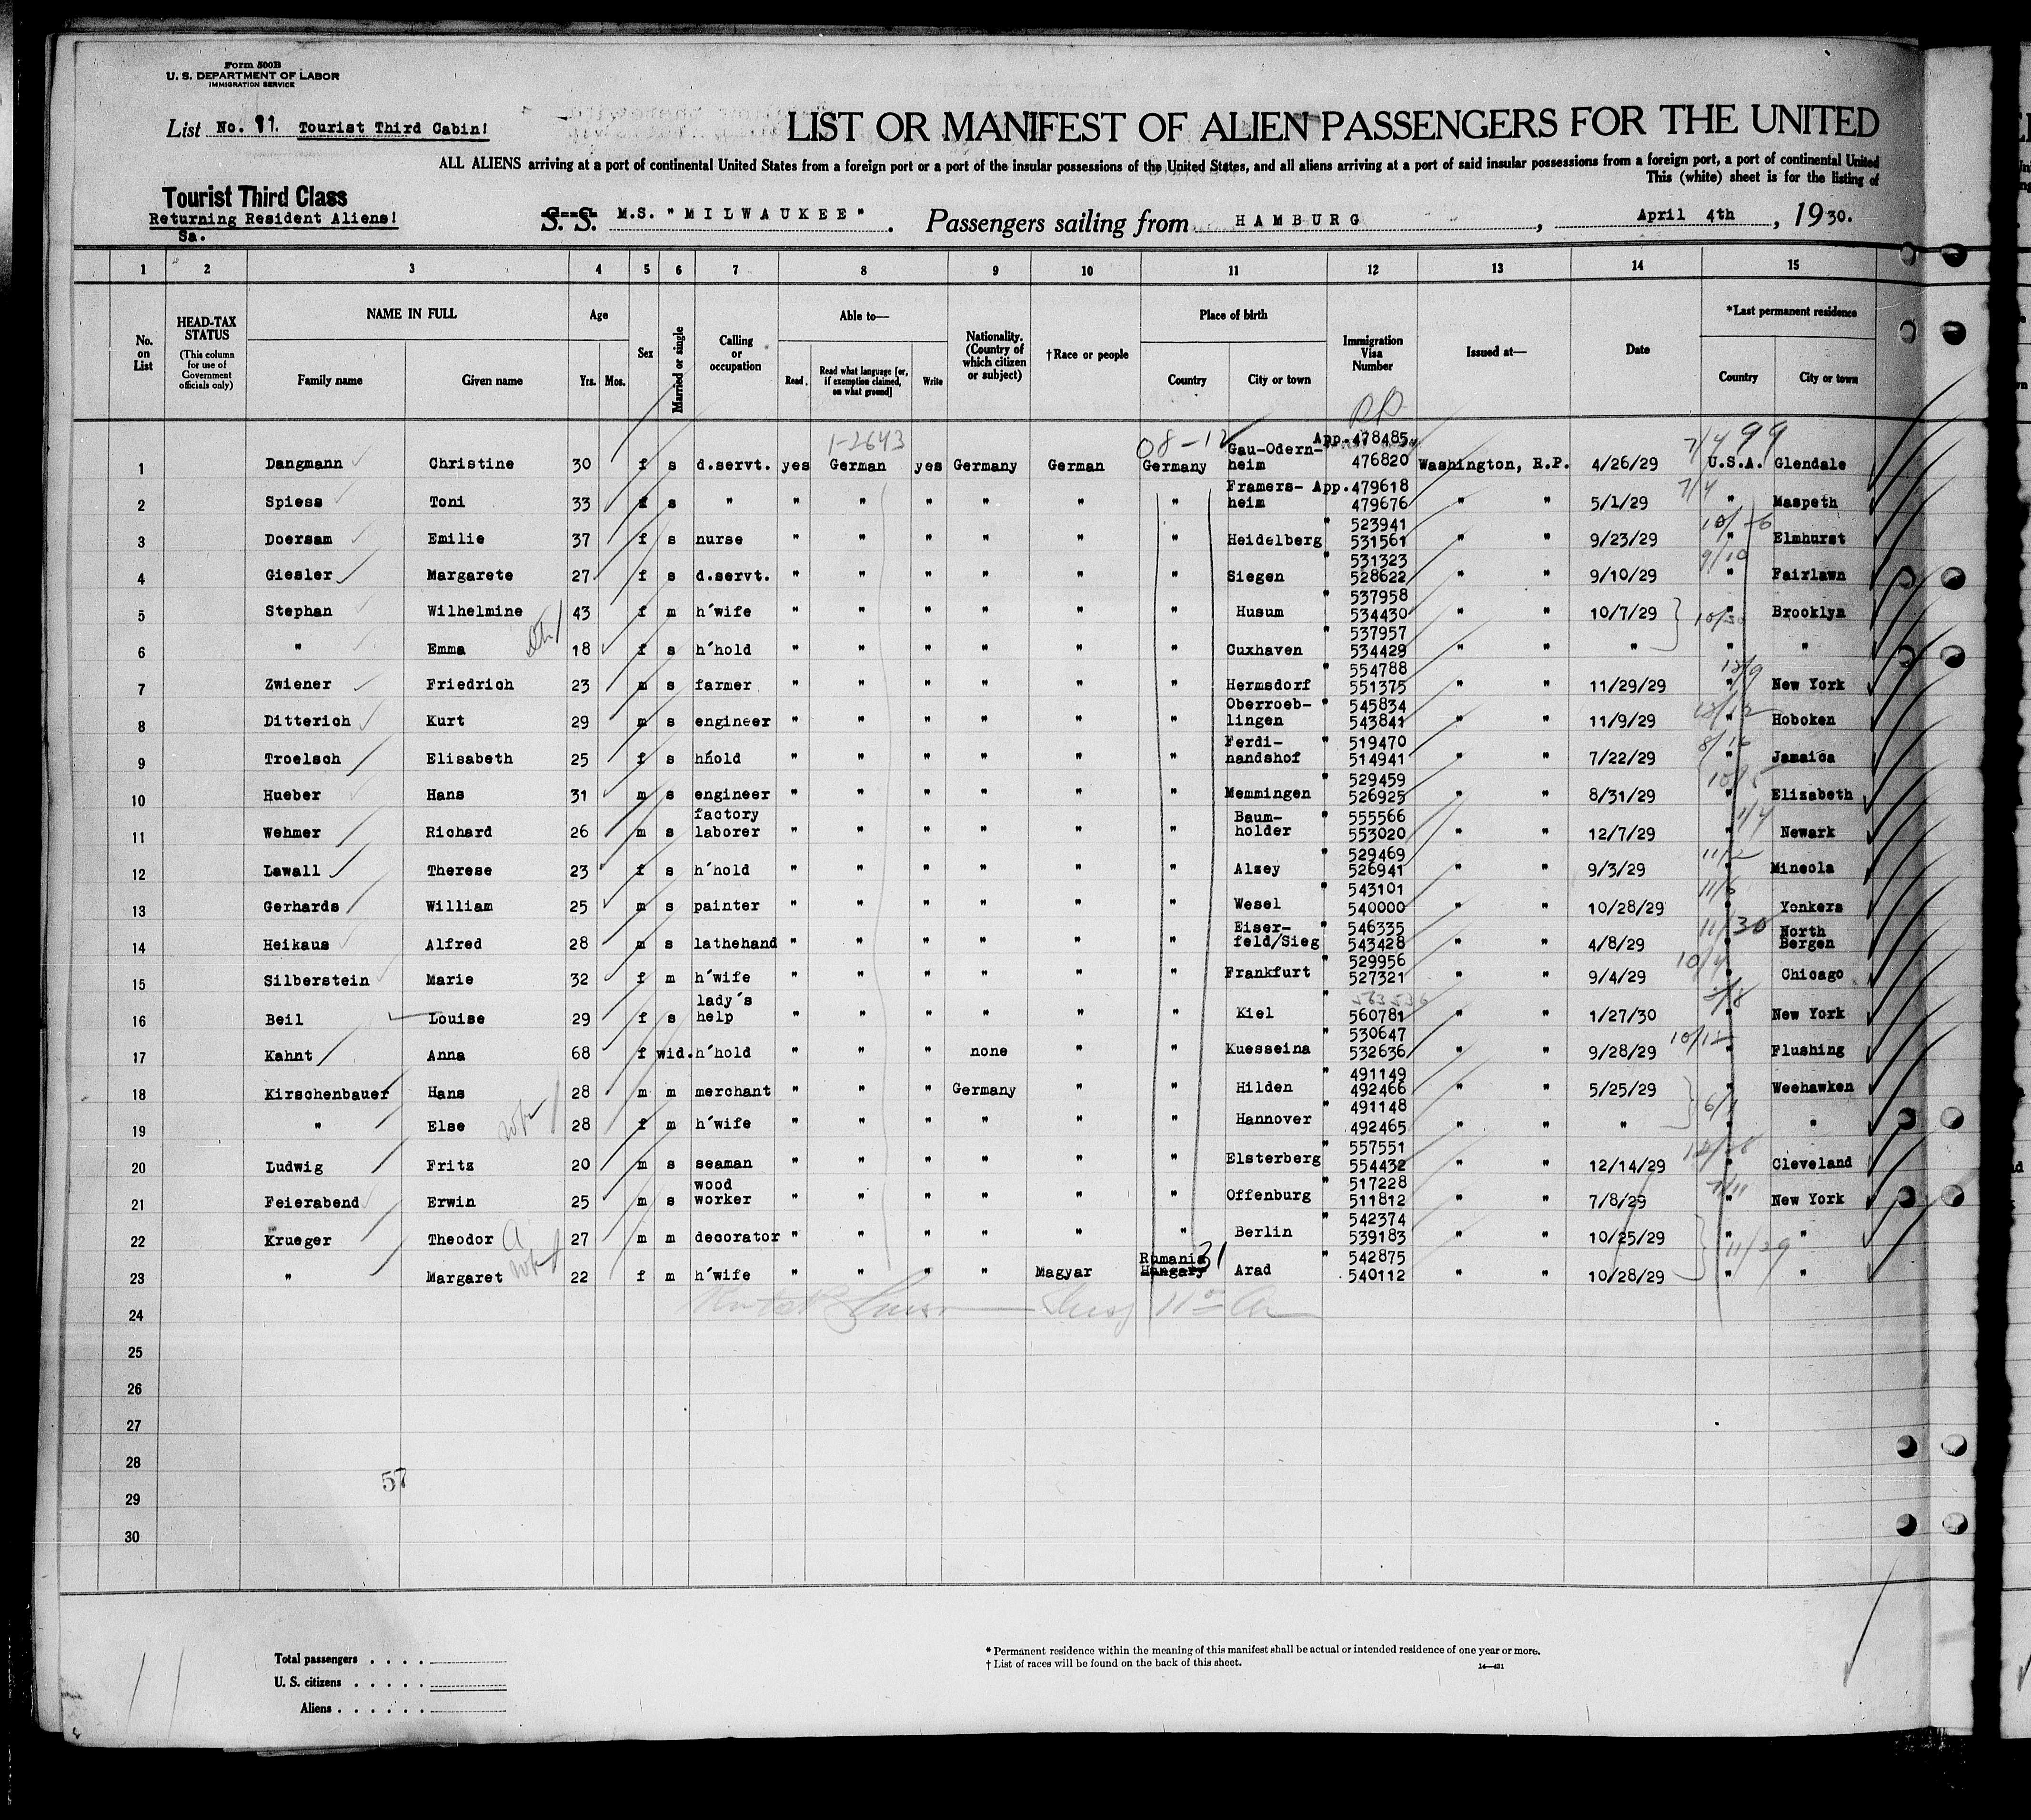 Form 500B
U. S. DEPARTMENT OF LABOR
IMMIGRATION SERVICE
List No. 11. Tourist Third Cabin!
LIST OR MANIFEST OF ALIEN PASSENGERS FOR THE UNITED
ALL ALIENS arriving at a port of continental United States from a foreign port or a port of the insular possessions of the United States, and all aliens arriving at a port of said insular possessions from a foreign port, a port of continental United
This (white) sheet is for the listing of
Tourist Third Class
Returning Resident Aliens!
Sa.
S. S. M.S. "MILWAUKEE". Passengers sailing from HAMBURG, April 4th, 1930.
1 2 3 4 5 6 7 8 9 10 11 12 13 14 15
No. on List
HEAD-TAX STATUS (This column for use of Government officials only)
NAME IN FULL
Family name Given name
Age
Yrs. Mos.
Sex
Married or single
Calling or occupation
Able to—
Read. Read what language [or, if exemption claimed, on what ground] Write
Nationality. (Country of which citizen or subject)
†Race or people
Place of birth
Country City or town
Immigration Visa Number
Issued at—
Date
*Last permanent residence
Country City or town
RP
1-2643 08-12 99
1 Dangmann Christine 30 f s d.servt. yes German yes Germany German Germany Gau-Odern-heim App.478485 476820 Washington, R.P. 4/26/29 7/4 U.S.A. Glendale
2 Spiess Toni 33 f s " " " " " " " Framers-heim App.479618 479676 " " 5/1/29 7/4 " Maspeth
3 Doersam Emilie 37 f s nurse " " " " " " Heidelberg " 523941 531561 " " 9/23/29 " Elmhurst
4 Giesler Margarete 27 f s d.servt. " " " " " " Siegen " 531323 528622 " " 9/10/29 9/10 " Fairlawn
5 Stephan Wilhelmine 43 f m h'wife " " " " " " Husum " 537958 534430 " " 10/7/29 " Brooklyn
6 " Emma 18 f s h'hold " " " " " " Cuxhaven " 537957 534429 " " " " "
7 Zwiener Friedrich 23 m s farmer " " " " " " Hermsdorf " 554788 551375 " " 11/29/29 12/9 " New York
8 Ditterich Kurt 29 m s engineer " " " " " " Oberroeb-lingen " 545834 543841 " " 11/9/29 " Hoboken
9 Troelsch Elisabeth 25 f s h'hold " " " " " " Ferdi-nandshof " 519470 514941 " " 7/22/29 " Jamaica
10 Hueber Hans 31 m s engineer " " " " " " Memmingen " 529459 526925 " " 8/31/29 " Elizabeth
11 Wehmer Richard 26 m s factory laborer " " " " " " Baum-holder " 555566 553020 " " 12/7/29 1/4 " Newark
12 Lawall Therese 23 f s h'hold " " " " " " Alzey " 529469 526941 " " 9/3/29 11/2 " Mineola
13 Gerhards William 25 m s painter " " " " " " Wesel " 543101 540000 " " 10/28/29 11/6 " Yonkers
14 Heikaus Alfred 28 m s lathehand " " " " " " Eiser-feld/Sieg " 546335 543428 " " 4/8/29 11/30 " North Bergen
15 Silberstein Marie 32 f m h'wife " " " " " " Frankfurt " 529956 527321 " " 9/4/29 10/4 " Chicago
16 Beil Louise 29 f s lady's help " " " " " " Kiel " 563536 560781 " " 1/27/30 " New York
17 Kahnt Anna 68 f wid. h'hold " " " none " " Kuesseina " 530647 532636 " " 9/28/29 10/12 " Flushing
18 Kirschenbauer Hans 28 m m merchant " " " Germany " " Hilden " 491149 492466 " " 5/25/29 " Weehawken
19 " Else 28 f m h'wife " " " " " " Hannover " 491148 492465 " " " " "
20 Ludwig Fritz 20 m s seaman " " " " " " Elsterberg " 557551 554432 " " 12/14/29 " Cleveland
21 Feierabend Erwin 25 m s wood worker " " " " " " Offenburg " 517228 511812 " " 7/8/29 7/11 " New York
22 Krueger Theodor 27 m m decorator " " " " " " Berlin " 542374 539183 " " 10/25/29 11/29 " "
23 " Margaret 22 f m h'wife " " " " Magyar Rumania Hungary 31 Arad " 542875 540112 " " 10/28/29 " "
24
25
26
27
28
29
30
57
Total passengers . . . .
U. S. citizens . . . . .
Aliens . . . . . .
* Permanent residence within the meaning of this manifest shall be actual or intended residence of one year or more.
† List of races will be found on the back of this sheet.
14—431